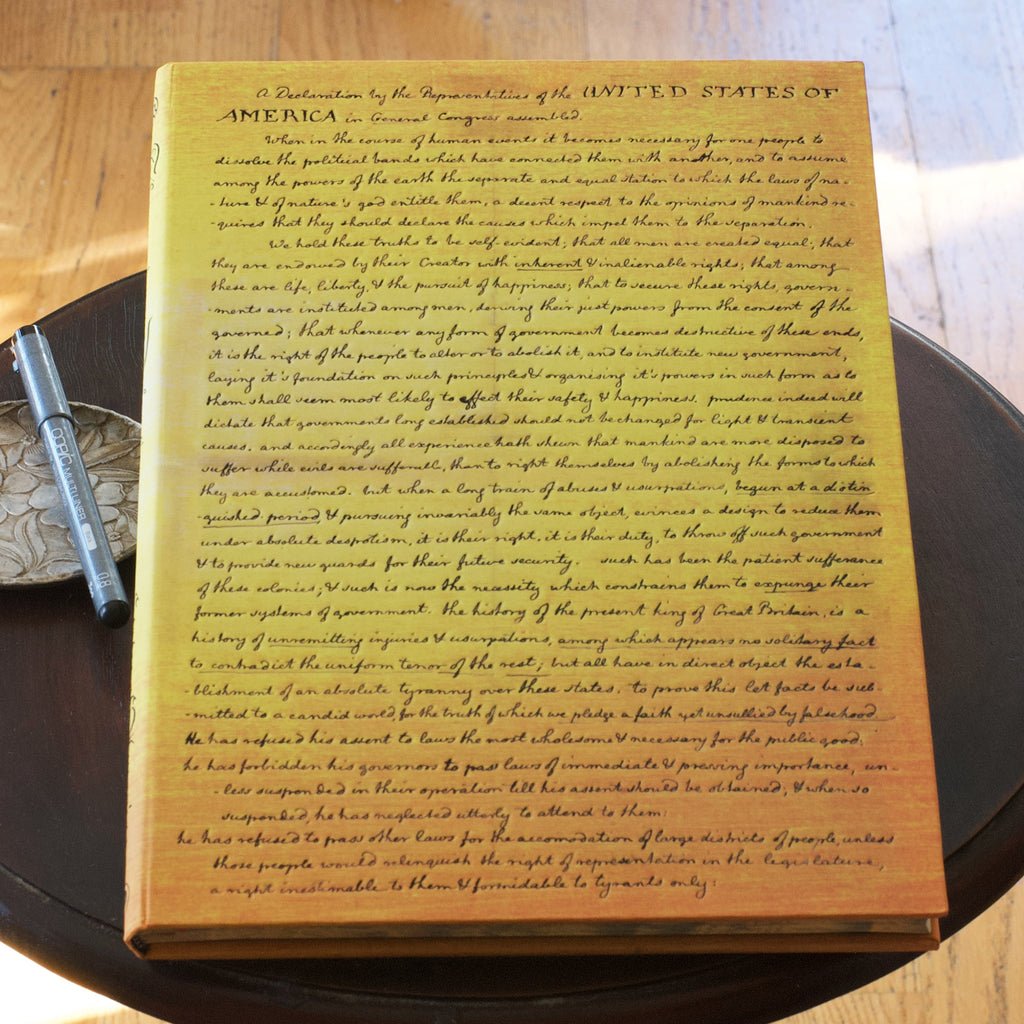 A Declaration by the Representatives of the UNITED STATES OF
AMERICA in General Congress assembled.
When in the course of human events it becomes necessary for one people to
dissolve the political bands which have connected them with another, and to assume
among the powers of the earth the separate and equal station to which the laws of na-
-ture & of nature's god entitle them, a decent respect to the opinions of mankind re-
-quires that they should declare the causes which impel them to the separation.
We hold these truths to be self-evident; that all men are created equal; that
they are endowed by their Creator with inherent & inalienable rights; that among
these are life, liberty, & the pursuit of happiness; that to secure these rights, govern-
-ments are instituted among men, deriving their just powers from the consent of the
governed; that whenever any form of government becomes destructive of these ends,
it is the right of the people to alter or to abolish it, and to institute new government,
laying it's foundation on such principles & organising it's powers in such form as to
them shall seem most likely to effect their safety & happiness. prudence indeed will
dictate that governments long established should not be changed for light & transient
causes. and accordingly all experience hath shewn that mankind are more disposed to
suffer while evils are sufferable, than to right themselves by abolishing the forms to which
they are accustomed. but when a long train of abuses & usurpations, begun at a distin
-guished period, & pursuing invariably the same object, evinces a design to reduce them
under absolute despotism, it is their right, it is their duty, to throw off such government
& to provide new guards for their future security. such has been the patient sufferance
of these colonies; & such is now the necessity which constrains them to expunge their
former systems of government. the history of the present king of Great Britain, is a
history of unremitting injuries & usurpations, among which appears no solitary fact
to contradict the uniform tenor of the rest; but all have in direct object the esta-
-blishment of an absolute tyranny over these states. to prove this let facts be sub-
-mitted to a candid world, for the truth of which we pledge a faith yet unsullied by falsehood
He has refused his assent to laws the most wholesome & necessary for the public good:
he has forbidden his governors to pass laws of immediate & pressing importance, un-
-less suspended in their operation till his assent should be obtained; & when so
suspended, he has neglected utterly to attend to them:
he has refused to pass other laws for the accomodation of large districts of people, unless
those people would relinquish the right of representation in the legislature,
a right inestimable to them & formidable to tyrants only:
COPIC MULTILINER